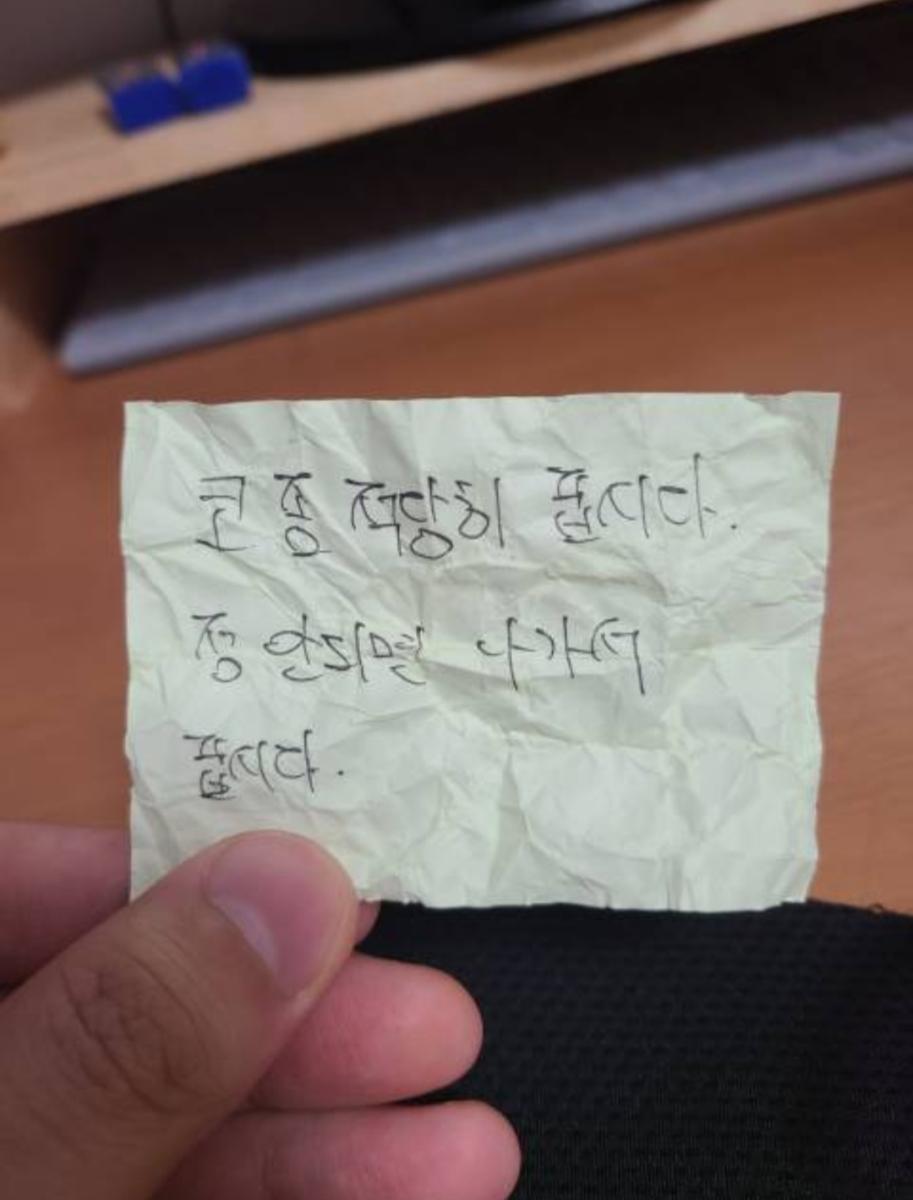 코 좀 적당히 풉시다.
정 안되면 나가서
풉시다.